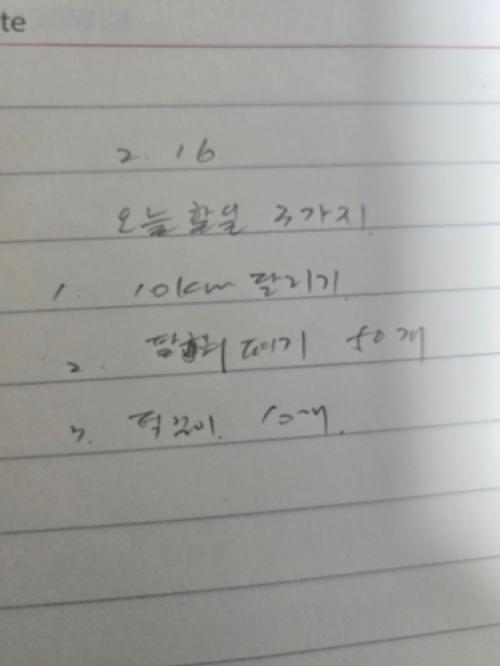 te
2. 16.
오늘 할일 3가지.
1. 10km 달리기
2. 팔굽혀 펴기 50개
3. 턱걸이. 10개.